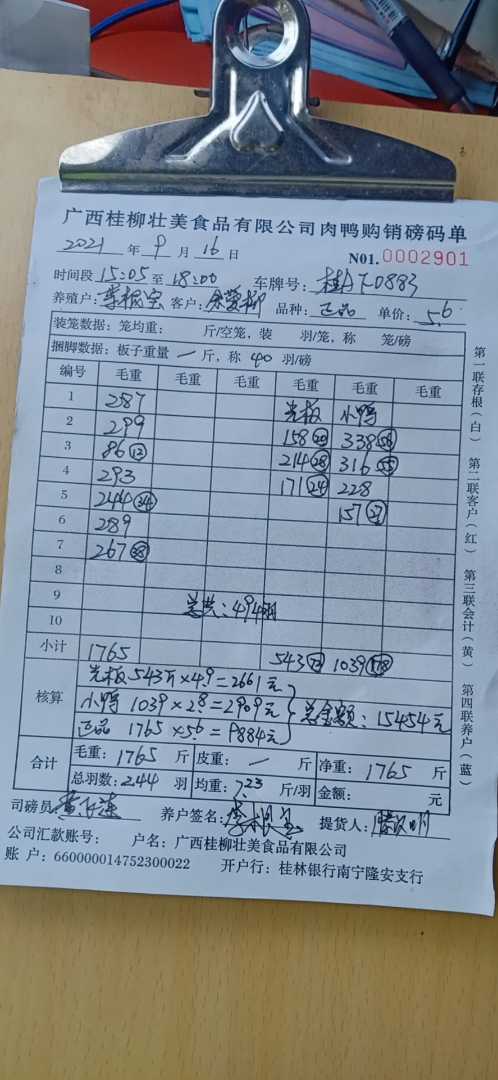 广西桂柳壮美食品有限公司肉鸭购销磅码单
2021 年 9 月 16 日 NO1.0002901
时间段 15:05 至 18:00 车牌号: 桂A F0883
养殖户: 客户: 品种: 正品 单价: 5.6
装笼数据: 笼均重: 斤/空笼, 装 羽/笼, 称 笼/磅
捆脚数据: 板子重量 一 斤, 称 40 羽/磅
编号 毛重 毛重 毛重 毛重 毛重 毛重
1 287 光板 小鸭
2 299 158 (20) 338 (58)
3 86 (12) 214 (28) 316 (55)
4 293 171 (24) 228
5 244 (34) 157 (27)
6 289
7 267 (38)
8
9 总共: 494羽
10
小计 1765 543 (72) 1039 (178)
核算
光板 543斤×4.9=2661元
小鸭 1039×2.8=2909元 总金额: 15454元
正品 1765×5.6=9884元
合计
毛重: 1765 斤 皮重: 一 斤 净重: 1765 斤
总羽数: 244 羽 均重: 7.23 斤/羽 金额: 元
司磅员 养户签名: 提货人:
公司汇款账号: 户名: 广西桂柳壮美食品有限公司
账 户: 660000014752300022 开户行: 桂林银行南宁隆安支行
第一联存根(白) 第二联客户(红) 第三联会计(黄) 第四联养户(蓝)